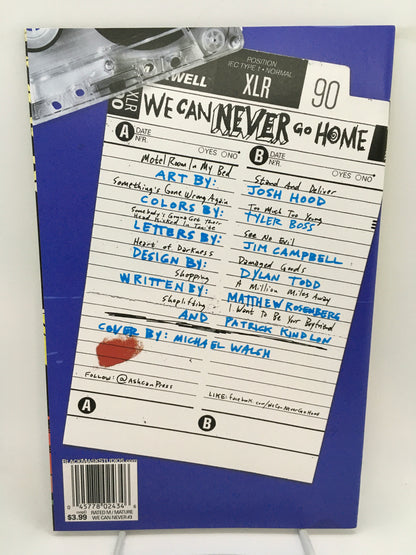 POSITION
IEC TYPE I • NORMAL
WELL
XLR
90
XLR
90
WE CAN NEVER GO HOME
A
DATE
N/R
YES NO
B
DATE
N/R
YES NO
Motel Room In My Bed
ART BY:
Something's Gone Wrong Again
COLORS BY:
Somebody's Gonna Get Their
Head Kicked In Tonite
LETTERS BY:
Heart of Darkness
DESIGN BY:
Shopping
WRITTEN BY:
Shoplifting
AND
Stand And Deliver
JOSH HOOD
Too Much Too Young
TYLER BOSS
See No Evil
JIM CAMPBELL
Damaged Goods
DYLAN TODD
A Million Miles Away
MATTHEW ROSENBERG
I Want To Be Your Boyfriend
PATRICK KINDLON
COVER BY: MICHAEL WALSH
FOLLOW: @AshcanPress
LIKE: facebook.com/WeCanNeverGoHome
A
B
BLACKMASKSTUDIOS.COM
0 45778 02434 6
$3.99
RATED M / MATURE
WE CAN NEVER #3